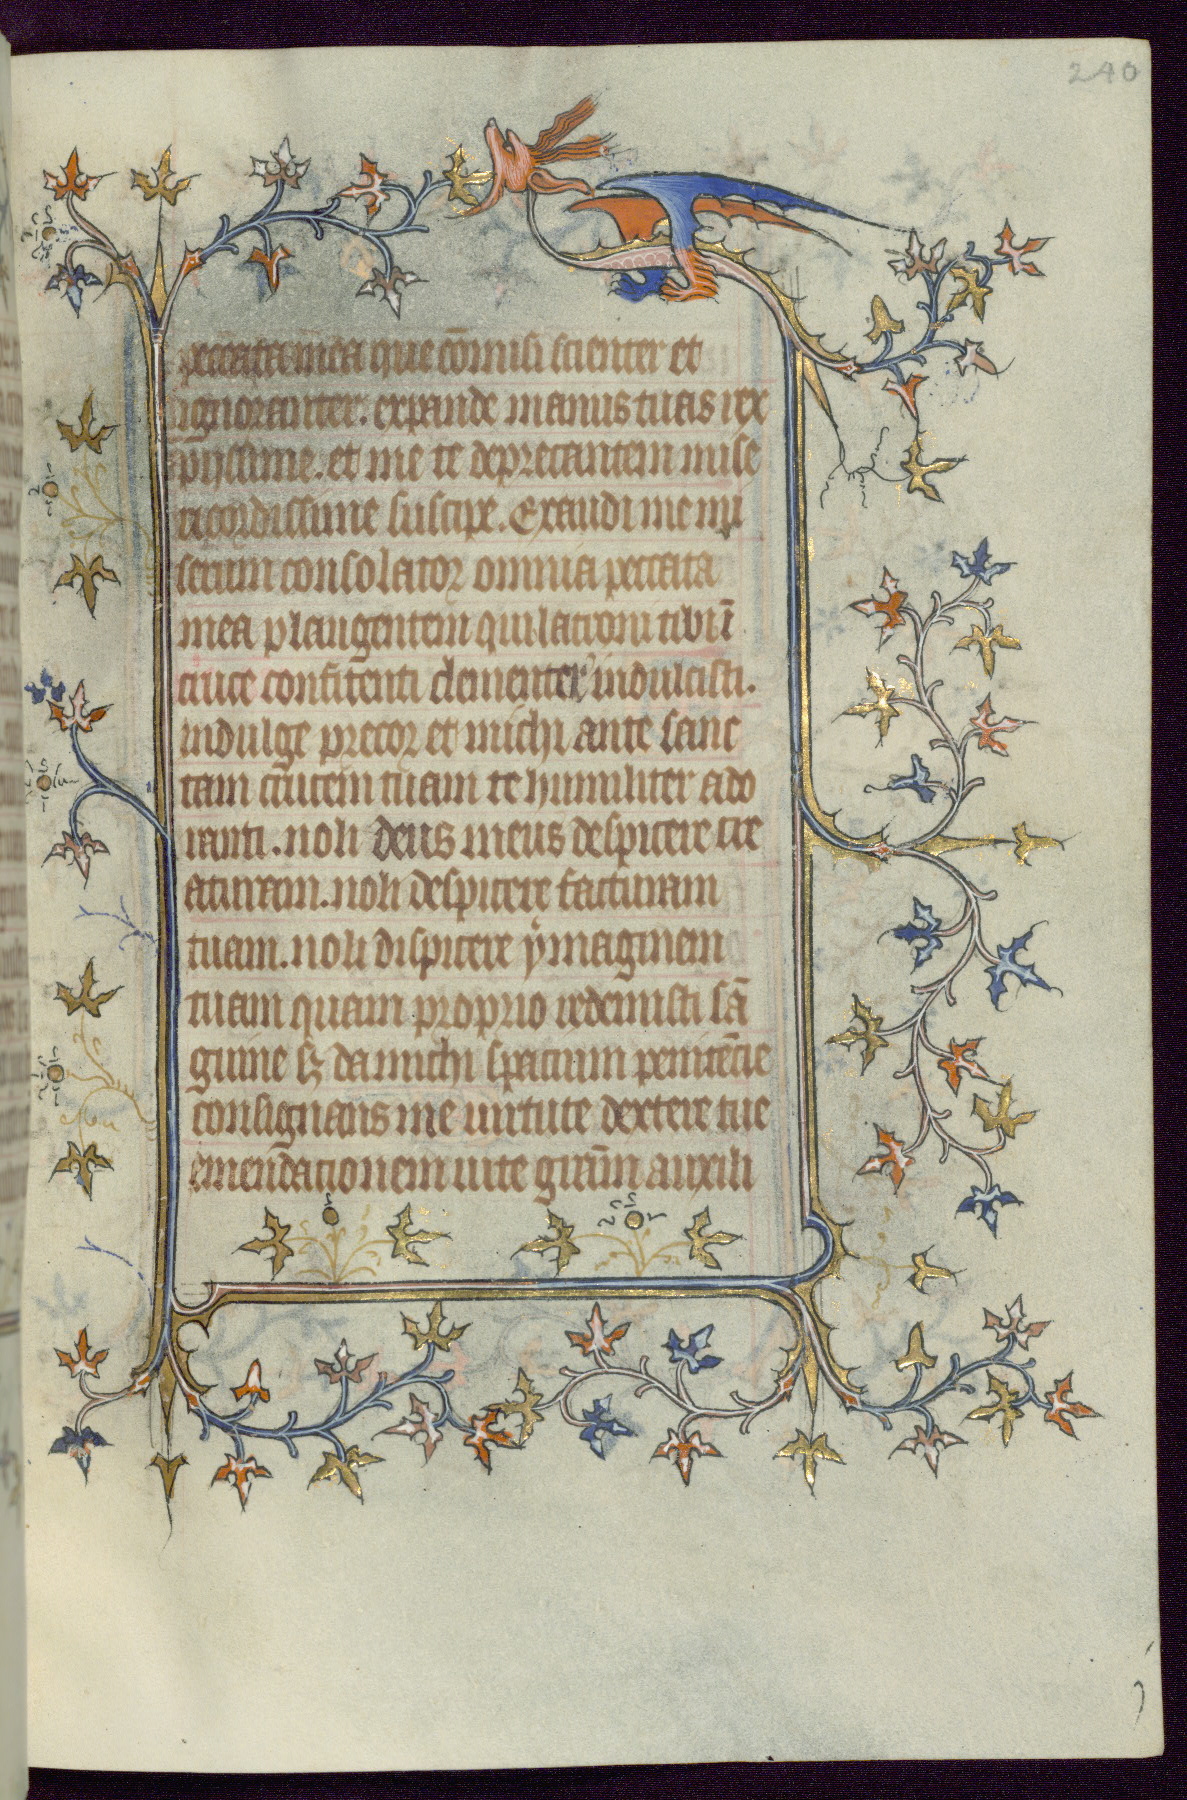 240
peccata mea que cōmisi scienter et
ignoranter. expande manus tuas rex
pijssime. et me te deprecantem mise
ricordissime suscipe. Exaudi me mi
serum consolator omnia peccata
mea plangentem qui latroni tibi ī
cruce confitenti clementer indulcisti.
indulge precor et michi ante sanc
tam crucem tuam te humiliter ado
ranti. noli deus meus despicere cre
aturam. noli despicere facturam
tuam. noli dispicere ymaginem
tuam quam proprio redemisti sā
guine sꝫ da michi spacium penitēcie
consignans me uirtute dextere tue
emendationem uite grām auxili